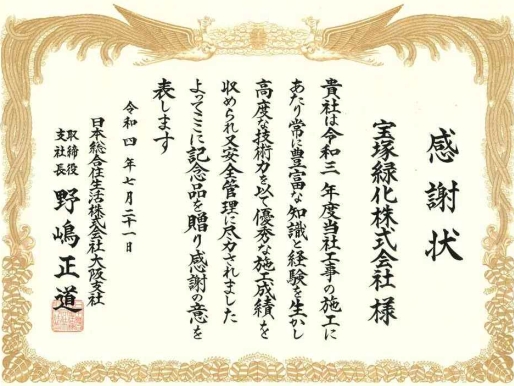 感謝状
宝塚緑化株式会社 様
貴社は令和三年度当社工事の施工に
あたり常に豊富な知識と経験を生かし
高度な技術力を以て優秀な施工成績を
収められ又安全管理に尽力されました
よってここに記念品を贈り感謝の意を
表します
令和四年七月二十一日
日本総合住生活株式会社大阪支社
取締役
支社長 野嶋正道